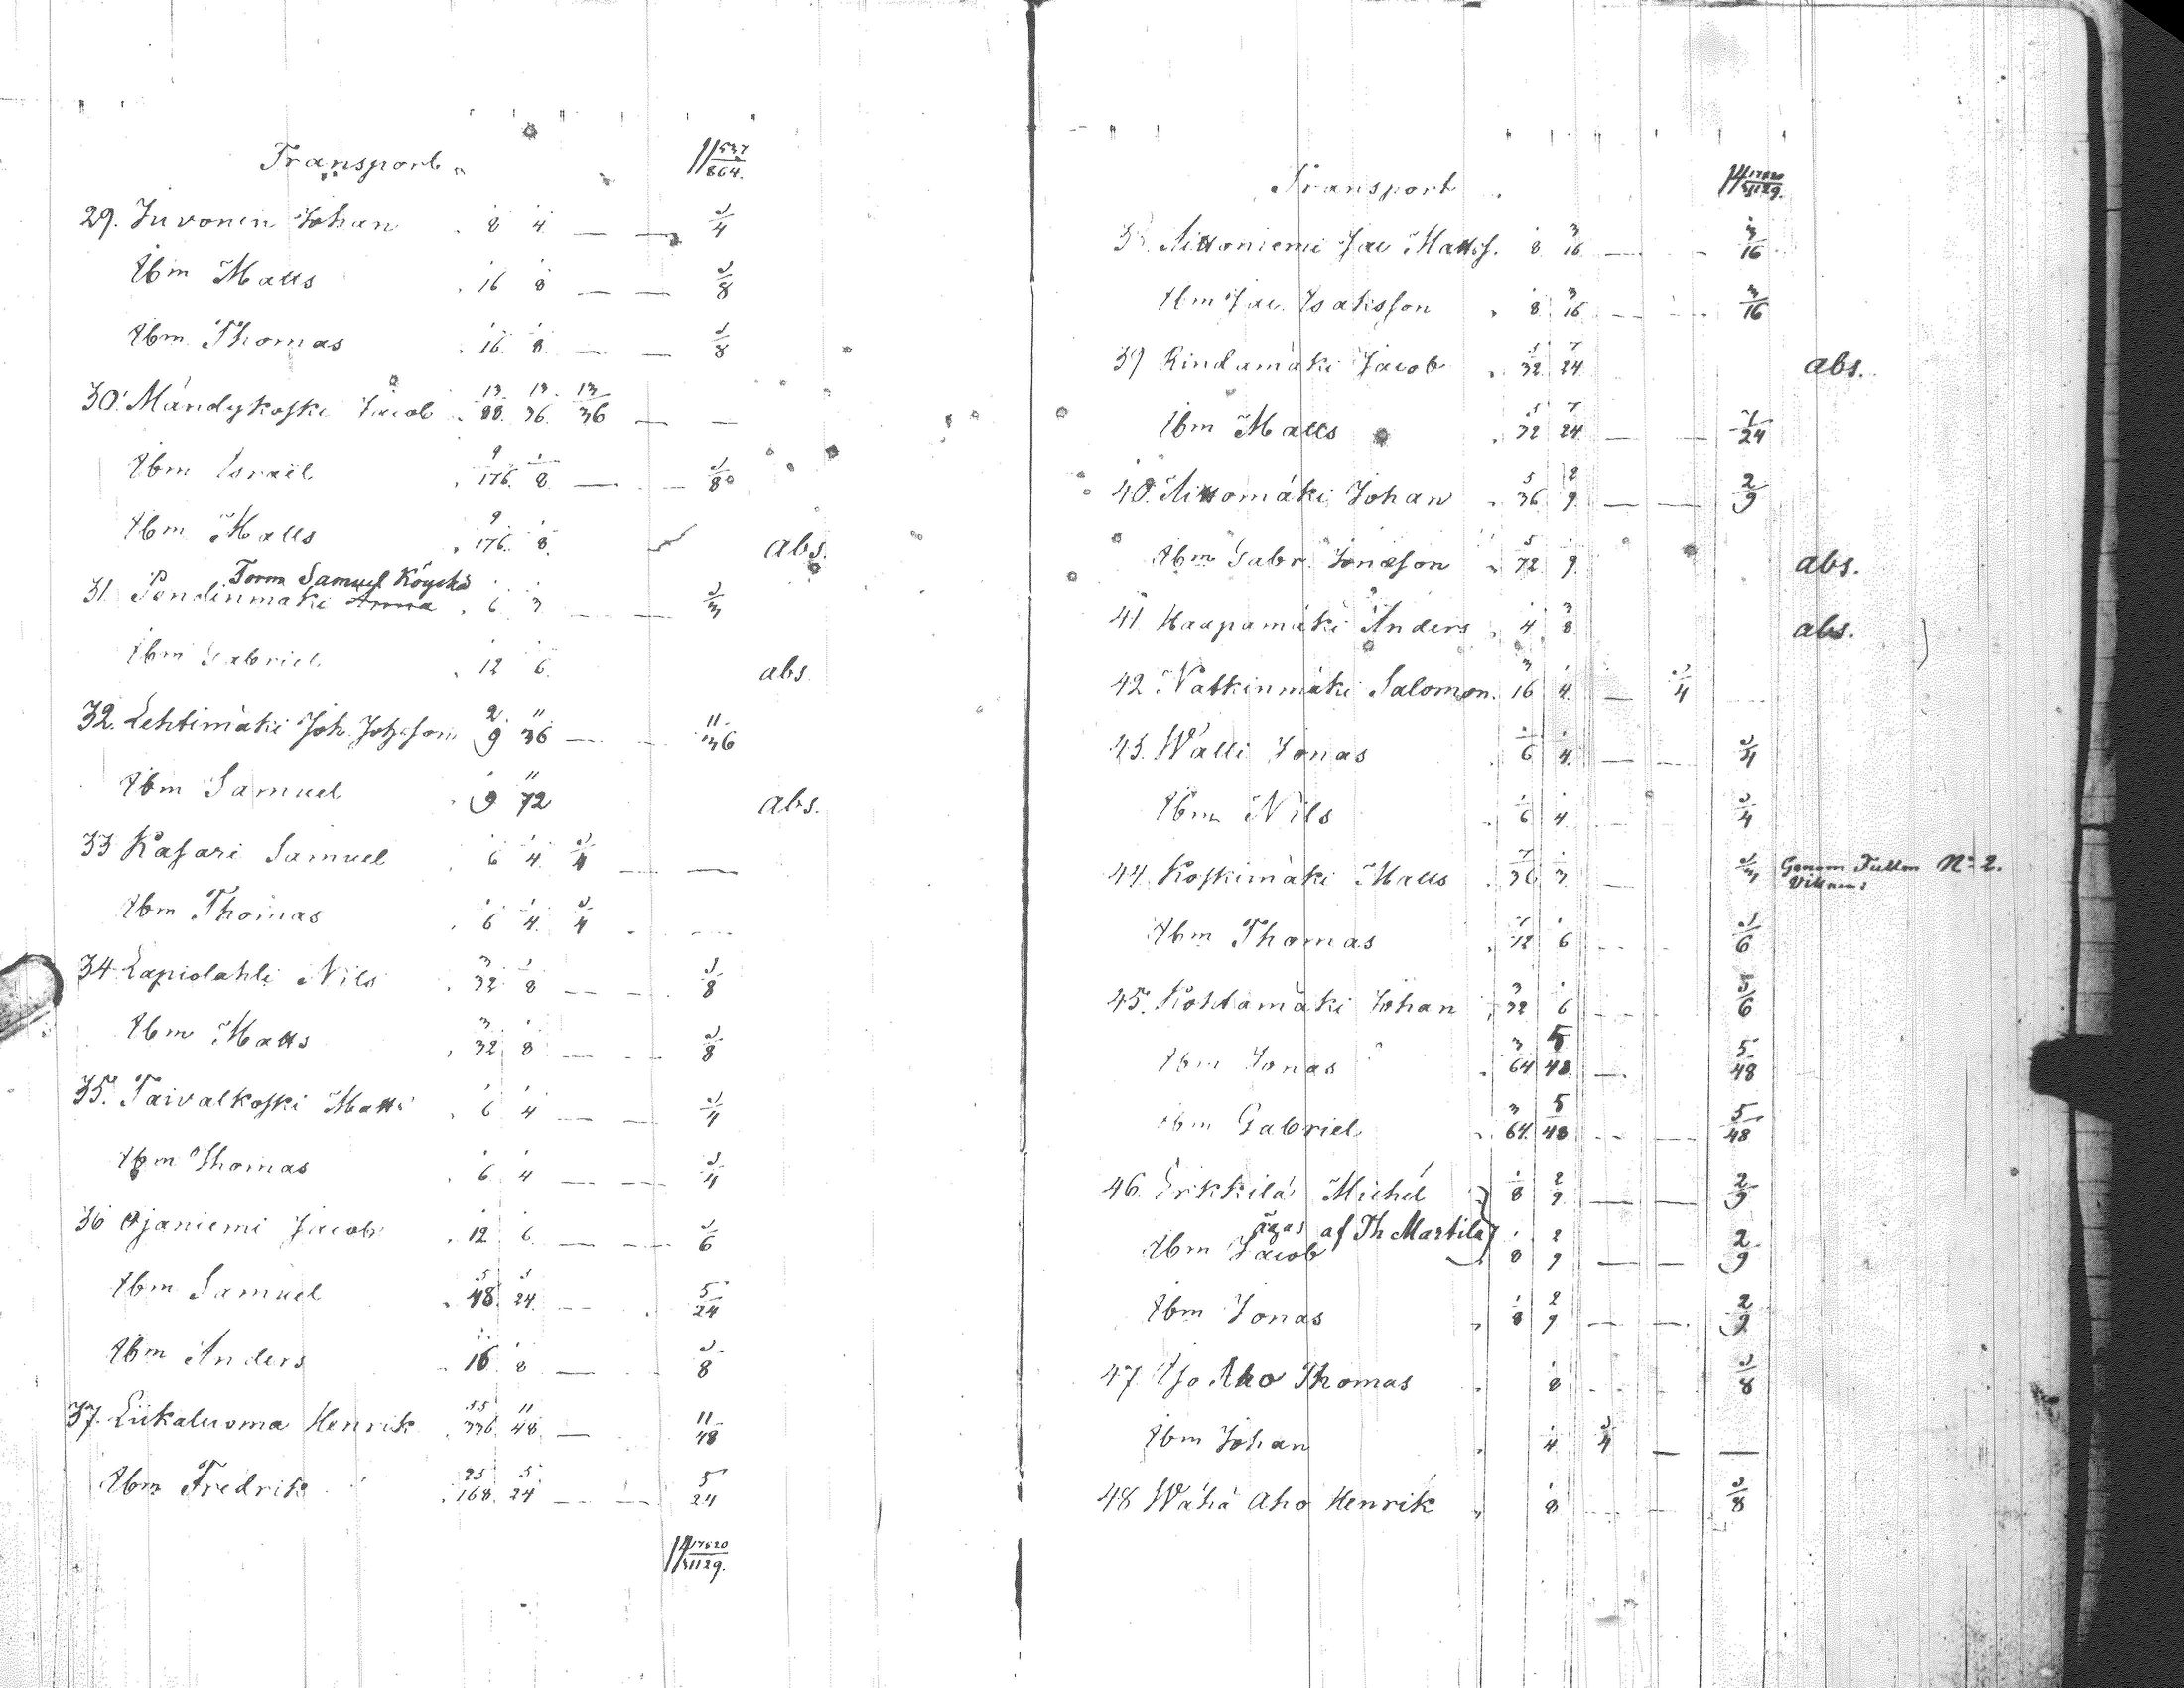 Transport 11 537/864.
29. Juvonen Johan 1/8 1/4 — — 1/4
Ibm Matts 1/16 1/8 — — 1/8
Ibm Thomas 1/16 1/8 — — 1/8
30. Mändykoski Jacob 13/88 13/36 13/36 — —
Ibm Israel 9/176 1/8 — — 1/8
Ibm Matts 9/176 1/8 abs.
Torm Samuel Köykä
31. Pendinmäki Anna 1/6 1/3 — — 1/3
Ibm Gabriel 1/12 1/6 abs.
32. Lehtimäki Joh. 2/9 11/36 — — 11/36
Ibm Samuel 1/9 11/72 abs.
33 Kasari Samuel 1/6 1/4 1/4 — —
Ibm Thomas 1/6 1/4 1/4 — —
34 Lapiolahti Nils 3/32 1/8 — — 1/8
Ibm Matts 3/32 1/8 — — 1/8
35. Taivalkoski Matts 1/6 1/4 — — 1/4
Ibm Thomas 1/6 1/4 — — 1/4
36 Ojaniemi Jacob 1/12 1/6 — — 1/6
Ibm Samuel 5/48 5/24 — — 5/24
Ibm Anders 1/16 1/8 — 1/8
37. Liikaluoma Henrik 55/336 11/48 — 11/48
Ibm Fredrik 25/168 5/24 — — 5/24
14 17620/31129.
Transport 14 17620/31129.
38. Aittoniemi Jac Mattss. 1/8 3/16 — — 3/16
Ibm Jac. Isaksson 1/8 3/16 — — 3/16
39 Rindamäki Jacob 5/32 7/24 abs.
Ibm Matts 5/72 7/24 — — 7/24
40. Aittomäki Johan 5/36 2/9 — — 2/9
Ibm Gabr. Jonasson 5/72 1/9 abs.
41 Haapamäki Anders 1/4 3/8 abs.
42 Natkinmäki Salomon 3/16 1/4 — 1/4
43. Walli Jonas 1/6 1/4 — — 1/4
Ibm Nils 1/6 1/4 — 1/4
44. Koskimäki Matts 7/36 1/3 — 1/3 Genom Fullm No 2.
Ibm Thomas 7/72 1/6 — — 1/6
45. Kohtamäki Johan 3/32 1/6 — — 5/6
Ibm Jonas 3/64 5/48 — 5/48
Ibm Gabriel 3/64 5/48 — — 5/48
46. Erkkilä Michel 1/8 2/9 — — 2/9
äges af Th Martila
Ibm Jacob 1/8 2/9 — — 2/9
Ibm Jonas 1/8 2/9 — — 2/9
47 Iso Aho Thomas 1/8 — — 1/8
Ibm Johan 1/4 1/4 — —
48 Wähä Aho Henrik 1/8 — — 1/8